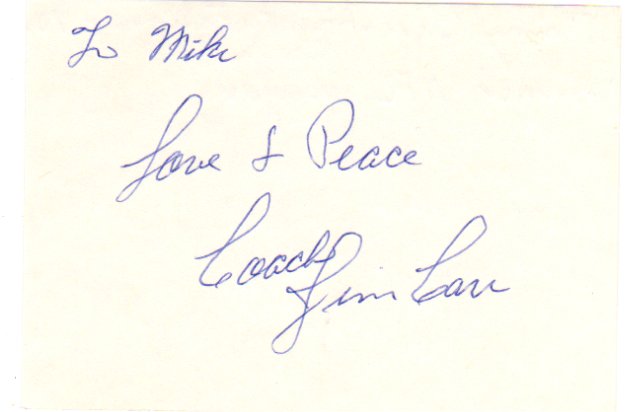 To Mike
Love & Peace
Coach Jim Carr